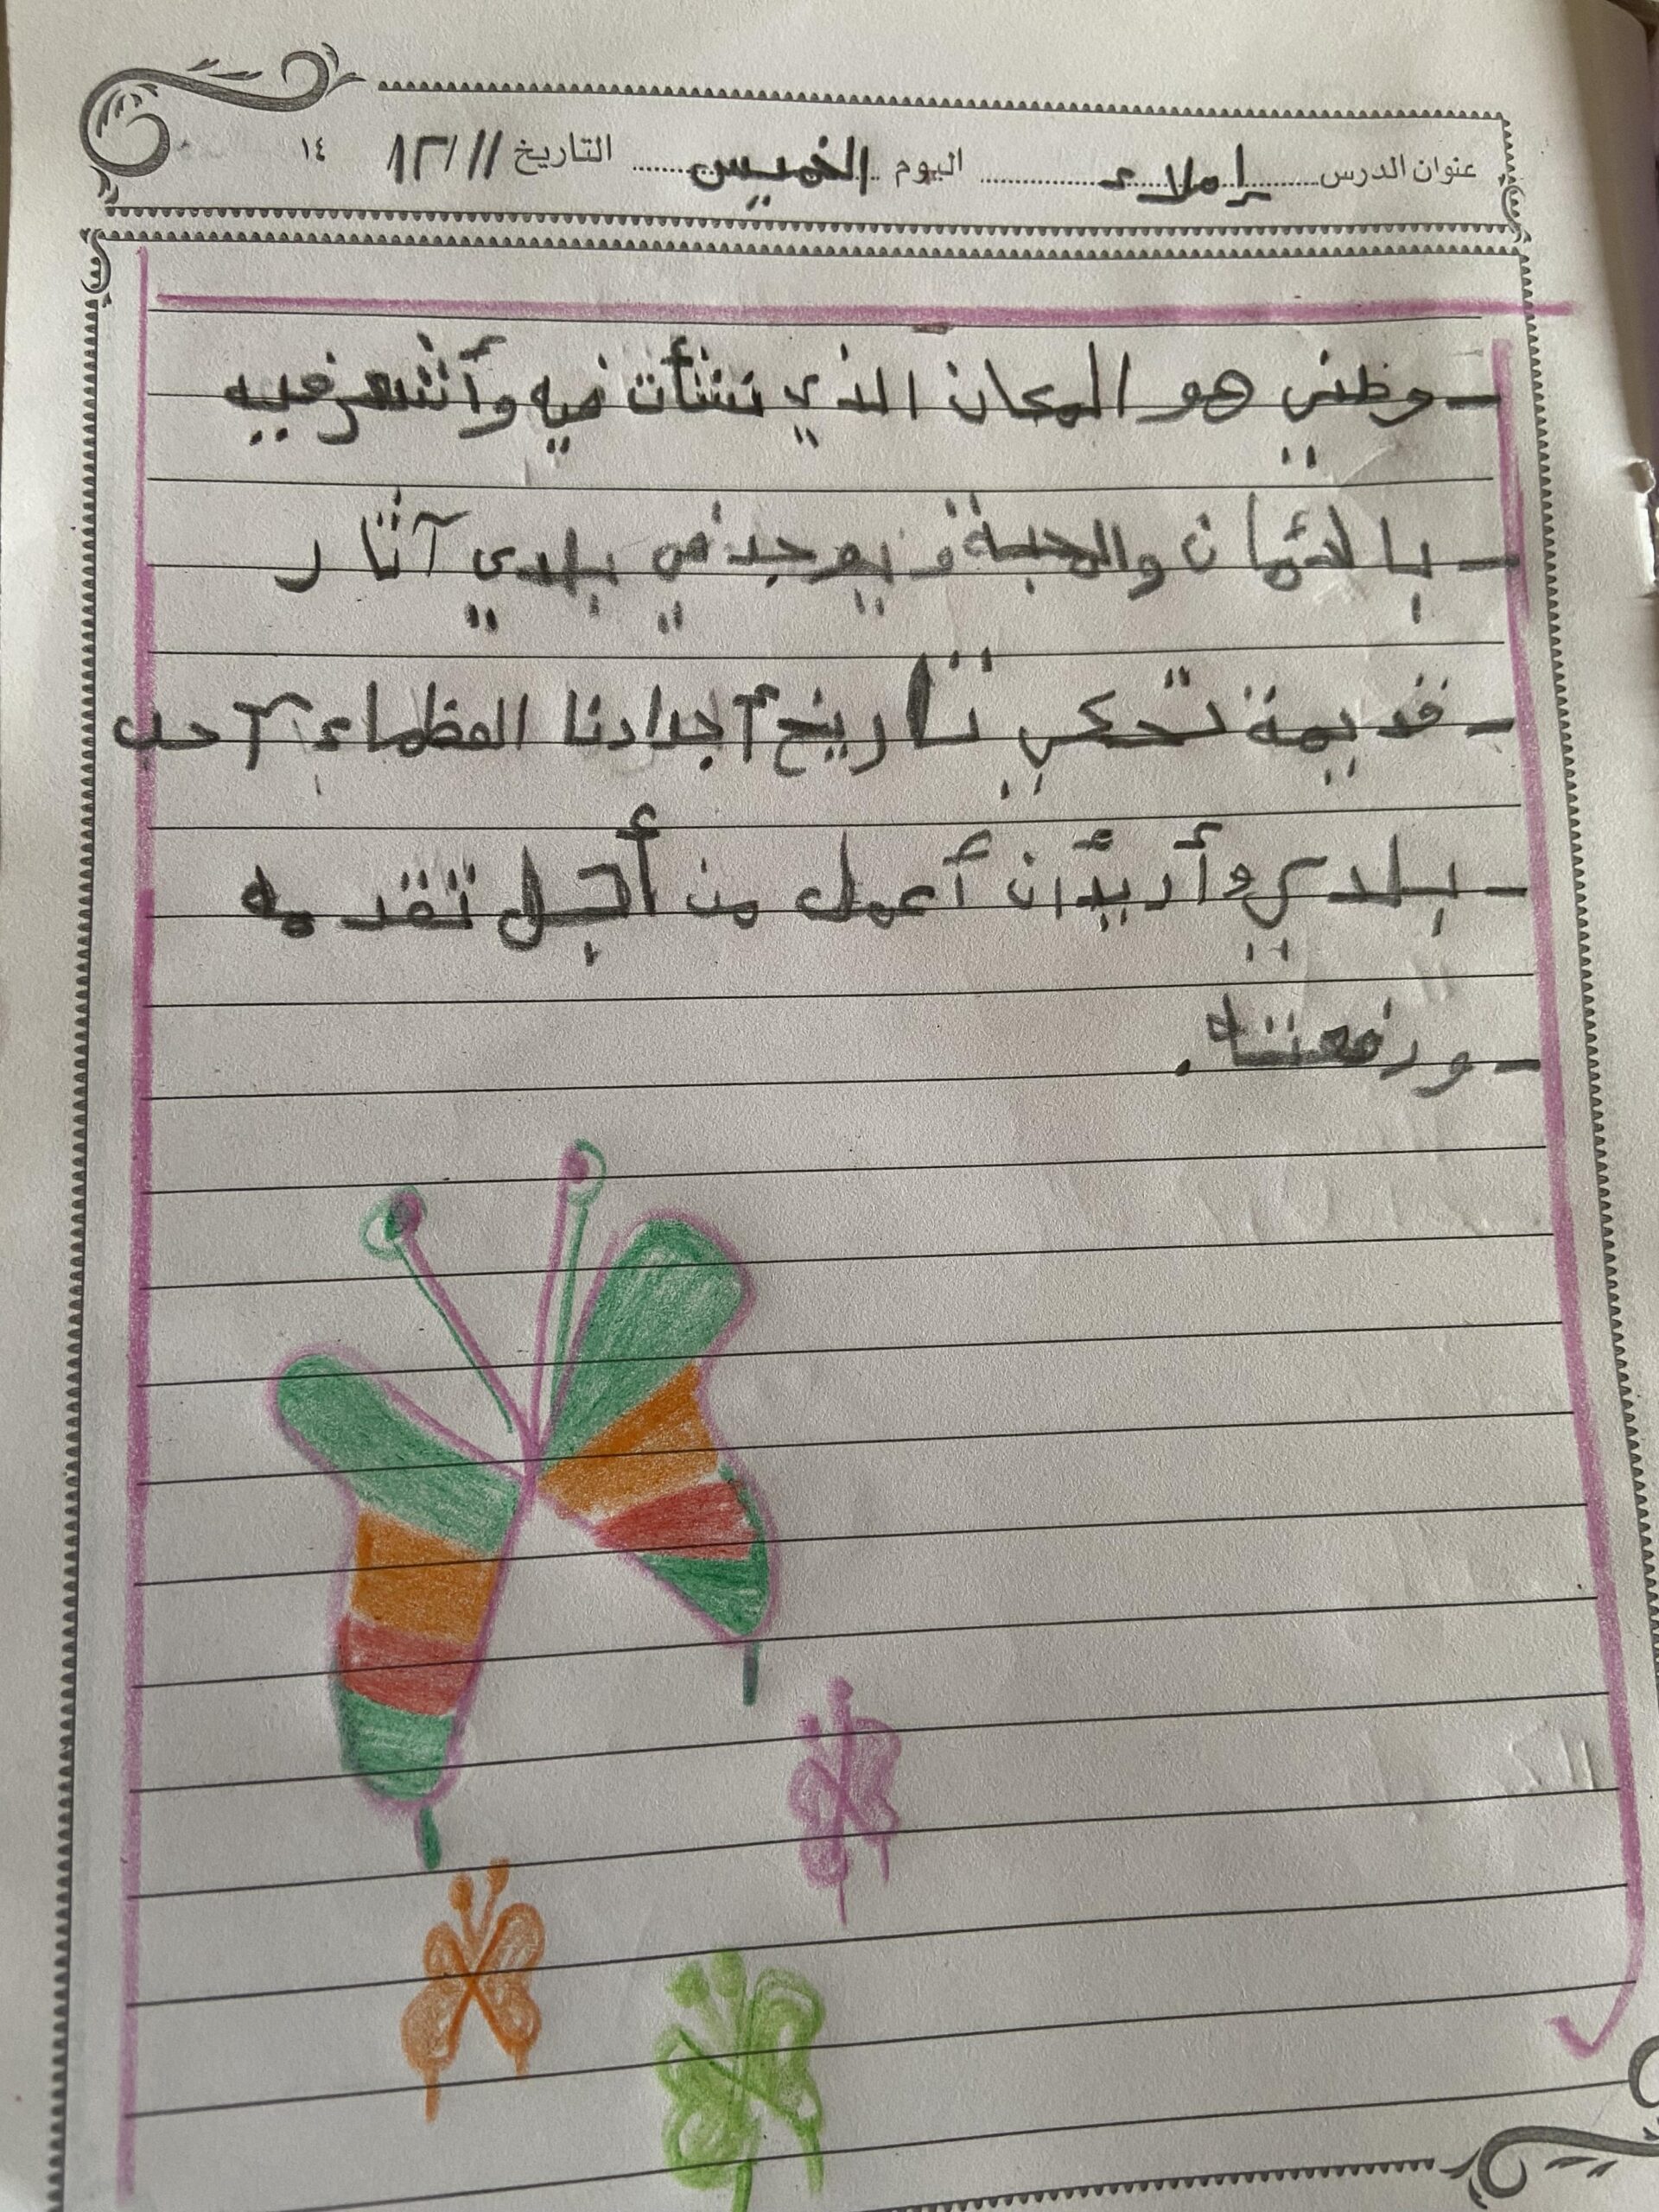 عنوان الدرس إملاء اليوم الخميس التاريخ ١٢/١١ ١٤
- وطني هو المكان الذي نشأت فيه وأشعر فيه
- بالائمان والمحبة ويوجد في بلدي آثار
- قديمة تحكي تاريخ آجدادنا العظماء آحب
- بلدي وأريد أن أعمل من أجل تقدمه
- ورفعته.